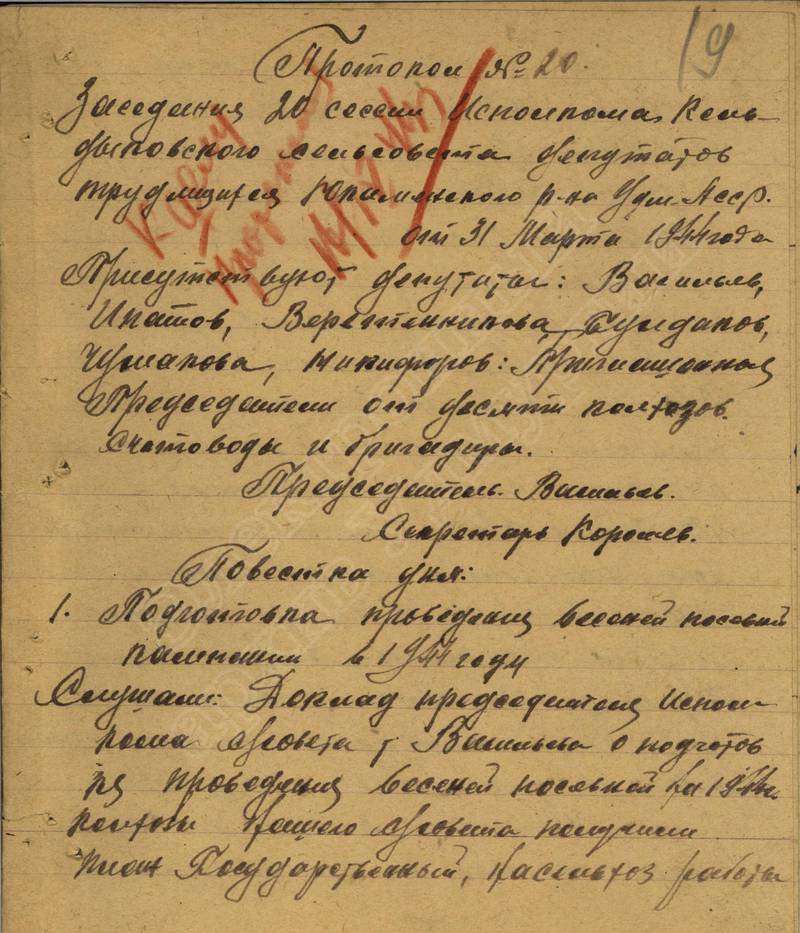 19
Протокол № 20.
Заседания 20 сессии Исполкома Кель-
дыковского сельсовета депутатов
трудящихся Юкаменского р-на Удм. Асср.
от 31 Марта 1944 года
Присутствуют депутаты: Васильев,
Ипатов, Веретенникова, Булдаков,
Чумакова, Никифоров: Приглашенная
Председатели от десяти колхозов.
Счетоводы и бригадиры.
Председатель. Васильев.
Секретарь Королев.
Повестка дня:
1. Подготовка проведения весеней посевной
кампании в 1944 году
Слушали: Доклад председателя Испол-
кома с/совета т Васильева о подготов
ке проведения весеней посевной на 1944г
колхозы нашего с/совета получили
план Государственный, сельхоз работы